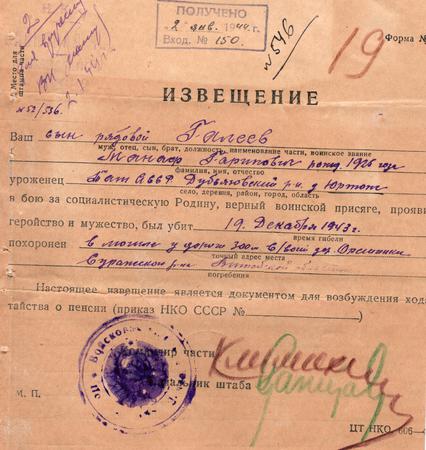 ПОЛУЧЕНО
2 янв. 1944 г.
Вход. № 150.
N 546
19
Форма №
2) Место для
штампа части
ИЗВЕЩЕНИЕ
Ваш сын рядовой Галеев
муж, отец, сын, брат, должность, наименование части, воинское звание
Манаф Гарипович рожд 1926 года
фамилия, имя, отчество
уроженец Баш АССР р-н д Юртою
село, деревня, район, город, область
в бою за социалистическую Родину, верный воинской присяге, прояви
геройство и мужество, был убит 19 Декабря 1943 г.
время гибели
похоронен в могиле у дороги 300 м дер.
точный адрес места
Суражского р-на Витебской области
погребения
Настоящее извещение является документом для возбуждения хода
тайства о пенсии (приказ НКО СССР №
Командир части
Начальник штаба
М. П.
ЦТ НКО. 606—4